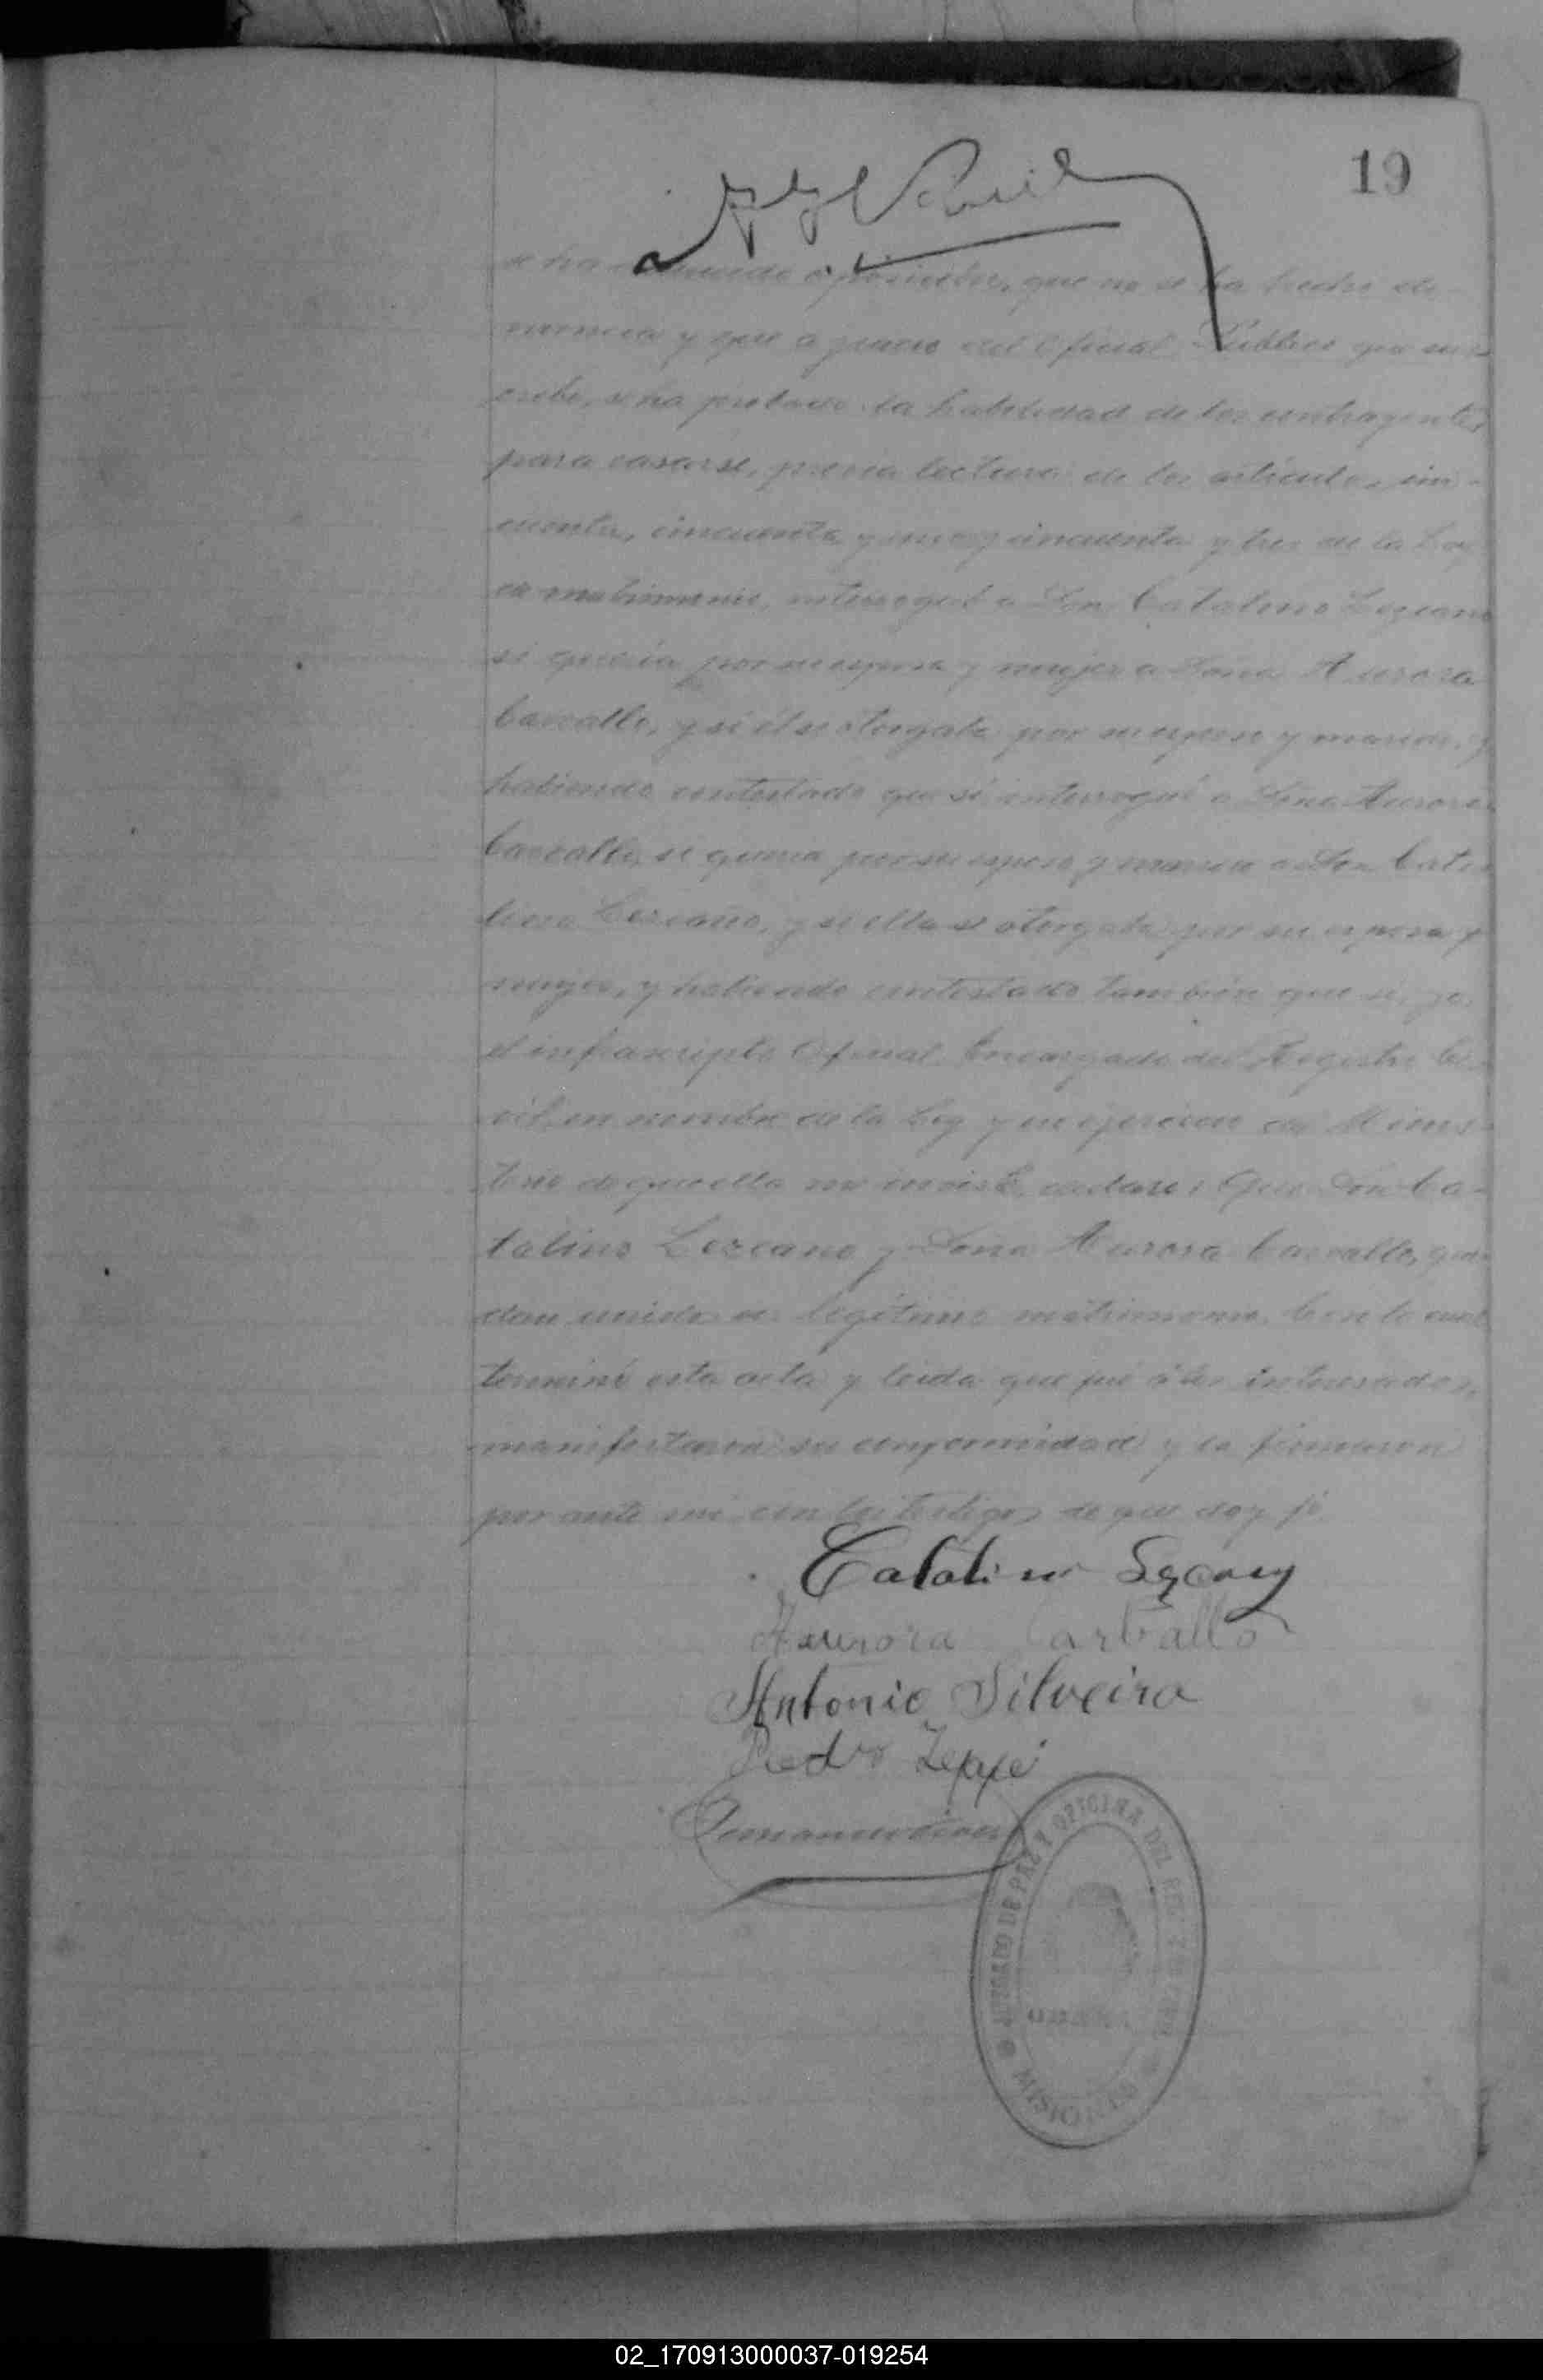 19
se ha deducido oposición, que no se ha hecho de-
nuncia y que a juicio del Oficial Público que sus-
cribe, se ha probado la habilidad de los contrayentes
para casarse, previa lectura de los artículos cin-
cuenta, cincuenta y uno y cincuenta y tres de la Ley
de matrimonio, interrogué a Don Catalino Lezcano
si quería por su esposa y mujer a Doña Aurora
Carvallo, y si él se otorgaba por su esposo y marido, y
habiendo contestado que sí, interrogué a Doña Aurora
Carvallo, si quería por su esposo y marido a Don Cata-
lino Lezcano, y si ella se otorgaba por su esposa y
mujer, y habiendo contestado también que sí, yo,
el infrascripto Oficial Encargado del Registro Ci-
vil, en nombre de la Ley y en ejercicio del Minis-
terio de que ella me inviste, declaro: Que Don Ca-
talino Lezcano y Doña Aurora Carvallo, que-
dan unidos en legítimo matrimonio. Con lo cual
terminé esta acta y leida que fué á los interesados,
manifestaron su conformidad y la firmaron
por ante mí con los testigos de que doy fé
Catalino Lezcano
Aurora Carballo
Antonio Silveira
Pedro Zeppe
JUZGADO DE PAZ Y OFICINA DEL REG. CIVIL
MISIONES
02_170913000037-019254